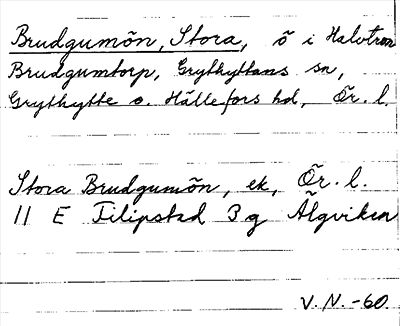 Brudgumön, Stora, ö i Halvtron
Brudgumtorp, Grythyttans sn,
Grythytte o. Hällefors hd, Ör. l.
Stora Brudgumön, ek, Ör. l.
11 E Filipstad 3 g Älgviken
V. N. -60.